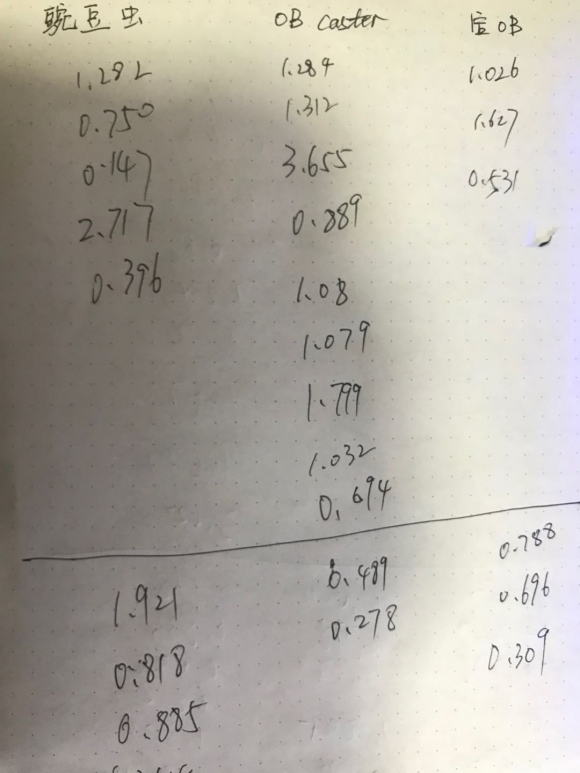 豌豆虫 OB caster 宝OB
1.282 1.284 1.026
0.750 1.312 1.627
0.147 3.655 0.531
2.717 0.889
0.396 1.08
1.079
1.799
1.032
0.694
1.921 0.489 0.788
0.818 0.278 0.696
0.885 0.309